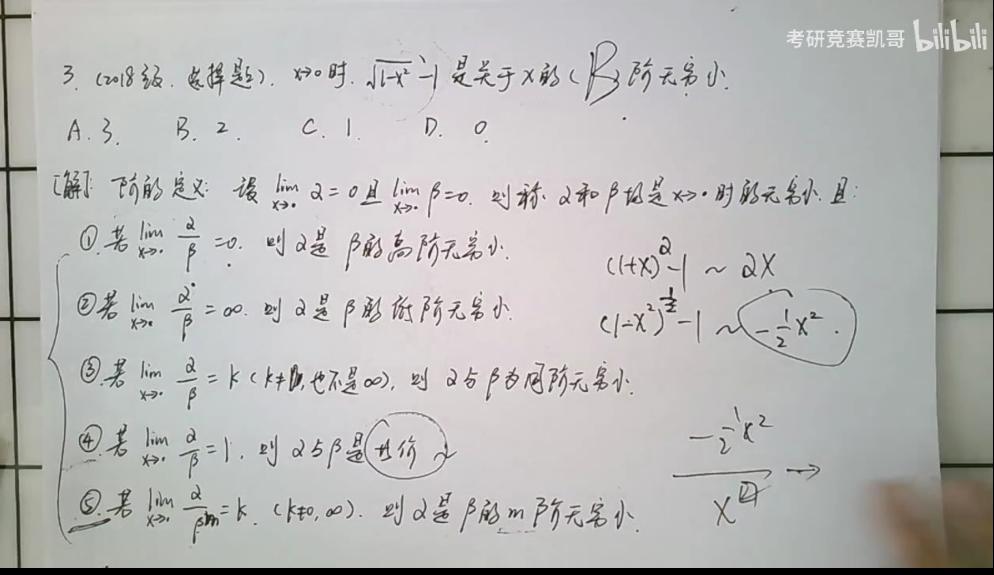 考研竞赛凯哥 bilibili
3. (2018级.选择题). x→0时. √1-x² -1 是关于x的( B )阶无穷小.
A. 3. B. 2. C. 1. D. 0.
[解]: 阶的定义: 设 lim x→0 α=0 且 lim x→0 β=0. 则称 α和β均是x→0时的无穷小.且:
①.若 lim x→0 α/β =0. 则α是β的高阶无穷小.
②若 lim x→0 α/β =∞. 则α是β的低阶无穷小.
③若 lim x→0 α/β = k (k≠0,也不是∞), 则 α与β为同阶无穷小.
④.若 lim x→0 α/β =1. 则α与β是等价
⑤.若 lim x→0 α/βᵐ =k. (k≠0,∞). 则α是β的m阶无穷小.
(1+x)²-1 ~ 2x
(1-x²)^½ -1 ~ -½x².
-½x² / x² →